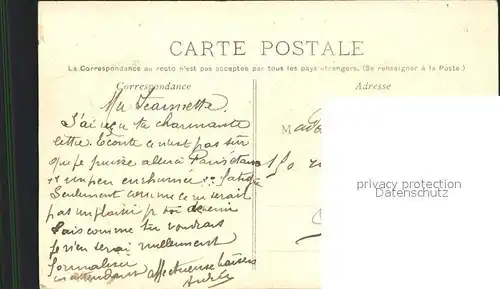 CARTE POSTALE
La Correspondance au recto n'est pas acceptée par tous les pays étrangers. (Se renseigner à la Poste.)
Correspondance
Adresse
Ma Jeannette.
J'ai reçu ta charmante
lettre. Ecoute ce n'est pas sûr
que je puisse aller à Paris étant
un peu enrhumée fatiguée
Seulement comme ce serait
pas un plaisir je
fais comme tu voudras
je n'en serai nullement
formalisée
en attendant affectueuse baisers
Andrée
M
150
privacy protection
privacy protection